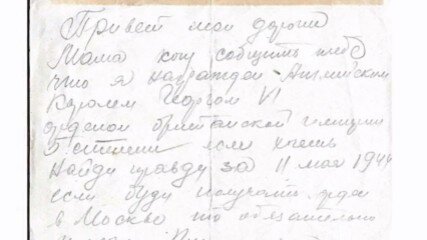 Привет мои дороги
Мама хочу собщить тебе
что я награжден Английским
Королем Георгом VI
орденом британской империи
5 степени если хочешь
найди правду за 11 мая 1944
если буду получать орден
в Москве то обязательно